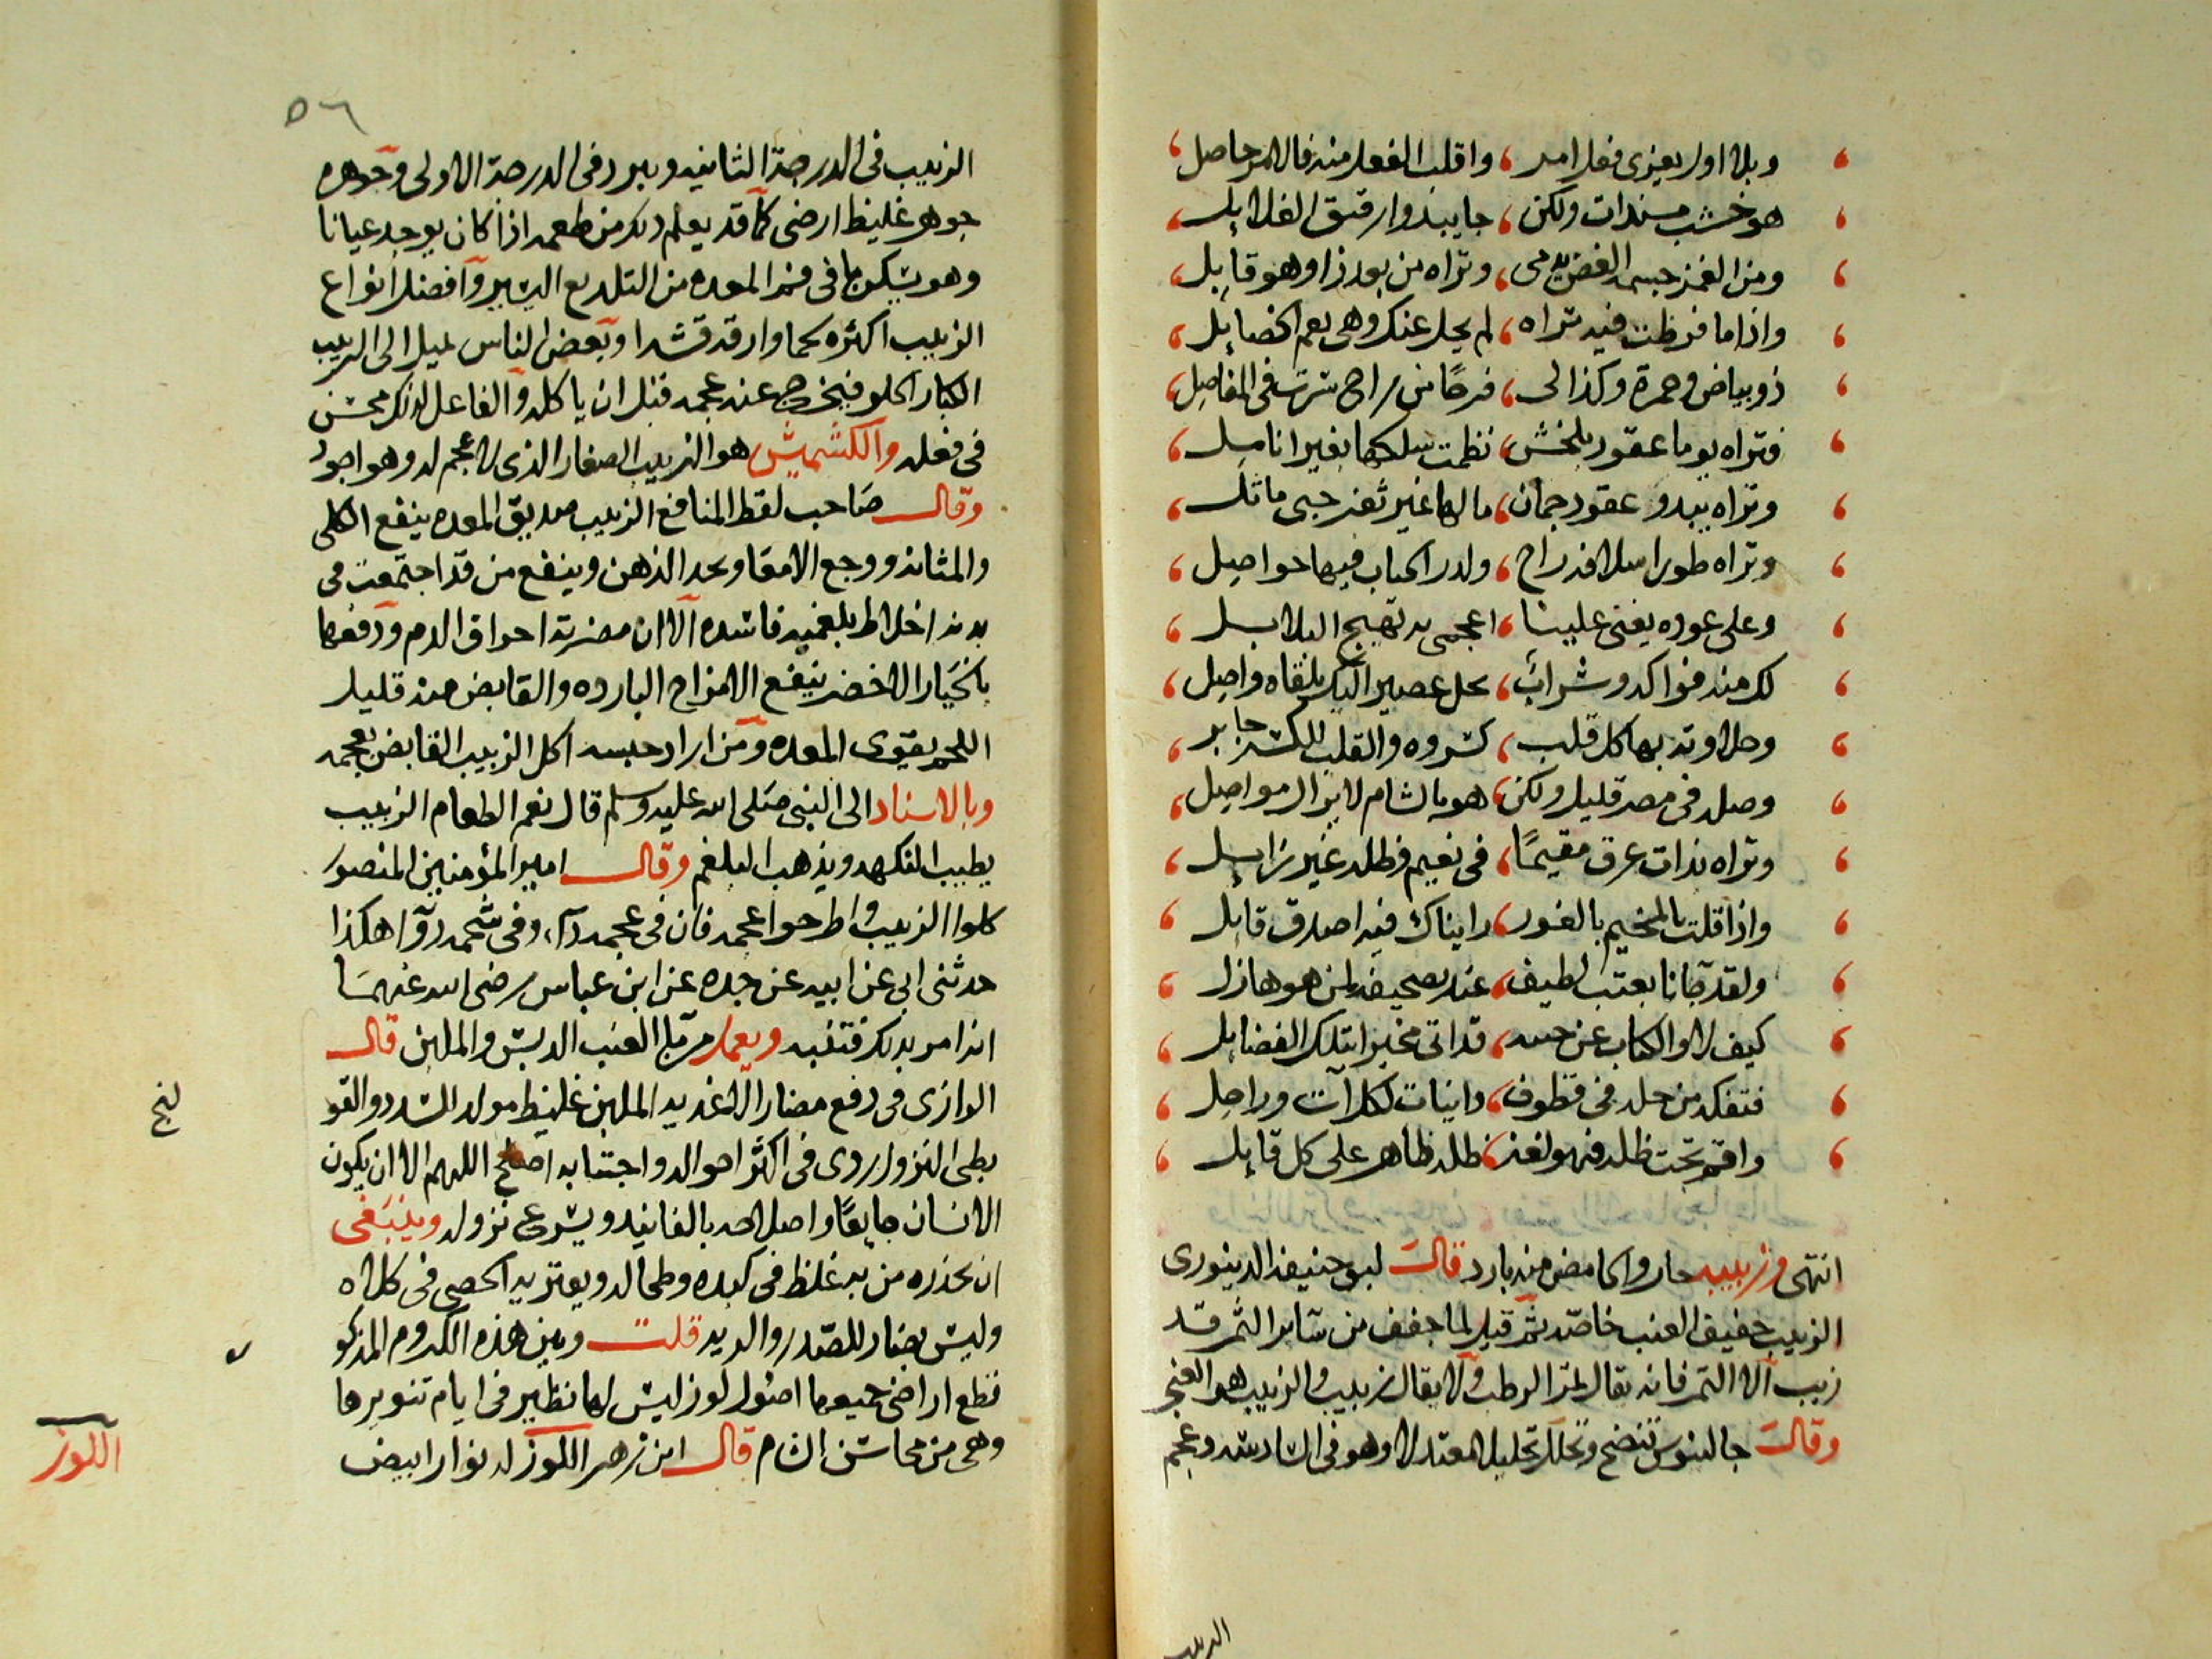 وبلا اول يعزى فعل امر ، واقلب الفعل منه فالامر حاصل
هو خشب مسندات ولكن ، جا يبدوا رقيق الغلايل
ومن الغمز جسمه الغض يدمى ، وتراه من بعد ذا وهو قابل
واذا ما فرطت فيه تراه ، لم يحل عنك وهى نعم الخصايل
ذو بياض وحمرة وكذا لى ، فرحًا من راح سرت فى المفاصل
فتراه يوما عقود بلخش ، نظمت سلكها بغير انامل
وتراه يبدو عقود جمان ، مالها غير ثغر حبى ماثل
وتراه طورا سلافه راح ، ولدر الحباب فيها حواصل
وعلى عوده يغنى علينا ، اعجمى به تهيج البلابل
لك منه فواكه وشراب ، حل عصير البكر بلقاه واصل
وحلاوته بها كل قلب ، كسروه والقلب للكسر جابر
وصله فى مصر قليل ولكن ، هو بالشام لايزال مواصل
وتراه بذات عرق مقيمًا ، فى نعيم فظله غير زايل
واذا قلت بالمخيم بالغور ، رايناك فيه اصدق قايل
ولقد جانا بعتب لطيف ، عند تصحيفه لمن هو هازل
كيف لا والكتاب عن حسنه ، قد اتى مخبرا بتلك الفضايل
فتفكه من حله فى قطوف ، دانيات لكل آت وراحل
واقم تحت ظله فهو لغز ، ظله ظاهر على كل قايل
انتهى وزبيبه حار والحامض منه بارد قالت لبو حنيفه الدينورى
الزبيب جفيف العنب خاصّه ثم قيل لما جفف من سآير الثمر قد
زبب الا التمر فانه يقال لتمر الرطب ولا يقال زبيب والزبيب هو العنجد
وقالت جالينوس تنضج وتحلل تحليلا معتدلا وهو فى السادسه وعجم
الزبيب
٥٦
الزبيب فى الدرجة الثانيه ويبرد فى الدرجة الاولى وجوهره
جوهر غليظ ارضى كما قد يعلم ذلك من طعمه اذا كان يوجد عيانا
وهو يسكن ما فى فم المعده من التلديع اليسير وافضل انواع
الزبيب اكثره لحما وارقه قشرا وبعض الناس يميل الى الزبيب
الكبار الحلو فيخرج عنه عجمه قبل ان ياكله والفاعل لذلك محسن
فى فعله والكشميش هو الزبيب الصغار الذى لا عجم له وهو اجود
وقال صاحب لقط المنافع الزبيب صديق المعده ينفع الكلى
والمثانه ووجع الامعا ويحد الذهن وينفع من قد اجتمعت فى
بدنه اخلاط بلغميه فاسده الا ان مضرته احراق الدم ودفعها
بالخيار الاخضر ينفع الامزاج البارده والقابض منه قليل
اللحم يقوى المعده ومن اراد حبسه اكل الزبيب القابض بعجمه
وبالاسناد الى النبى صلى الله عليه وسلم قال نعم الطعام الزبيب
يطيب النكهه ويذهب البلغم وقال امير المؤمنين المنصور
كلوا الزبيب واطرحوا عجمه فان فى عجمه دآء وفى شحمه دوآ هكذا
حدثنى ابى عن ابيه عن جده عن ابن عباس رضى الله عنهما
انه امر بذلك فتنبه ويعمل من مآ العنب الدبس والملبن قال
الرازى فى دفع مضار الاغذيه الملبن غليظ مولد السدد والقو
لنج
بطى النزول ردى فى اكثر احواله واجتنابه اصلح اللهم الا ان يكون
الانسان جايعًا واصلاحه بالفانيد ويسرع نزوله وينبغى
ان يحذره من به غلظ فى كبده وطحاله ويعتريه الحصى فى كلاه
وليس بضار للصدر والريه قلت وبين هذه الكروم المذكو
ر
قطع اراضى جميعها اصول لوز ليس لها نظير فى ايام تنويرها
وهى من محاسن الشام قال ابن زهر اللوز له نوار ابيض
اللوز